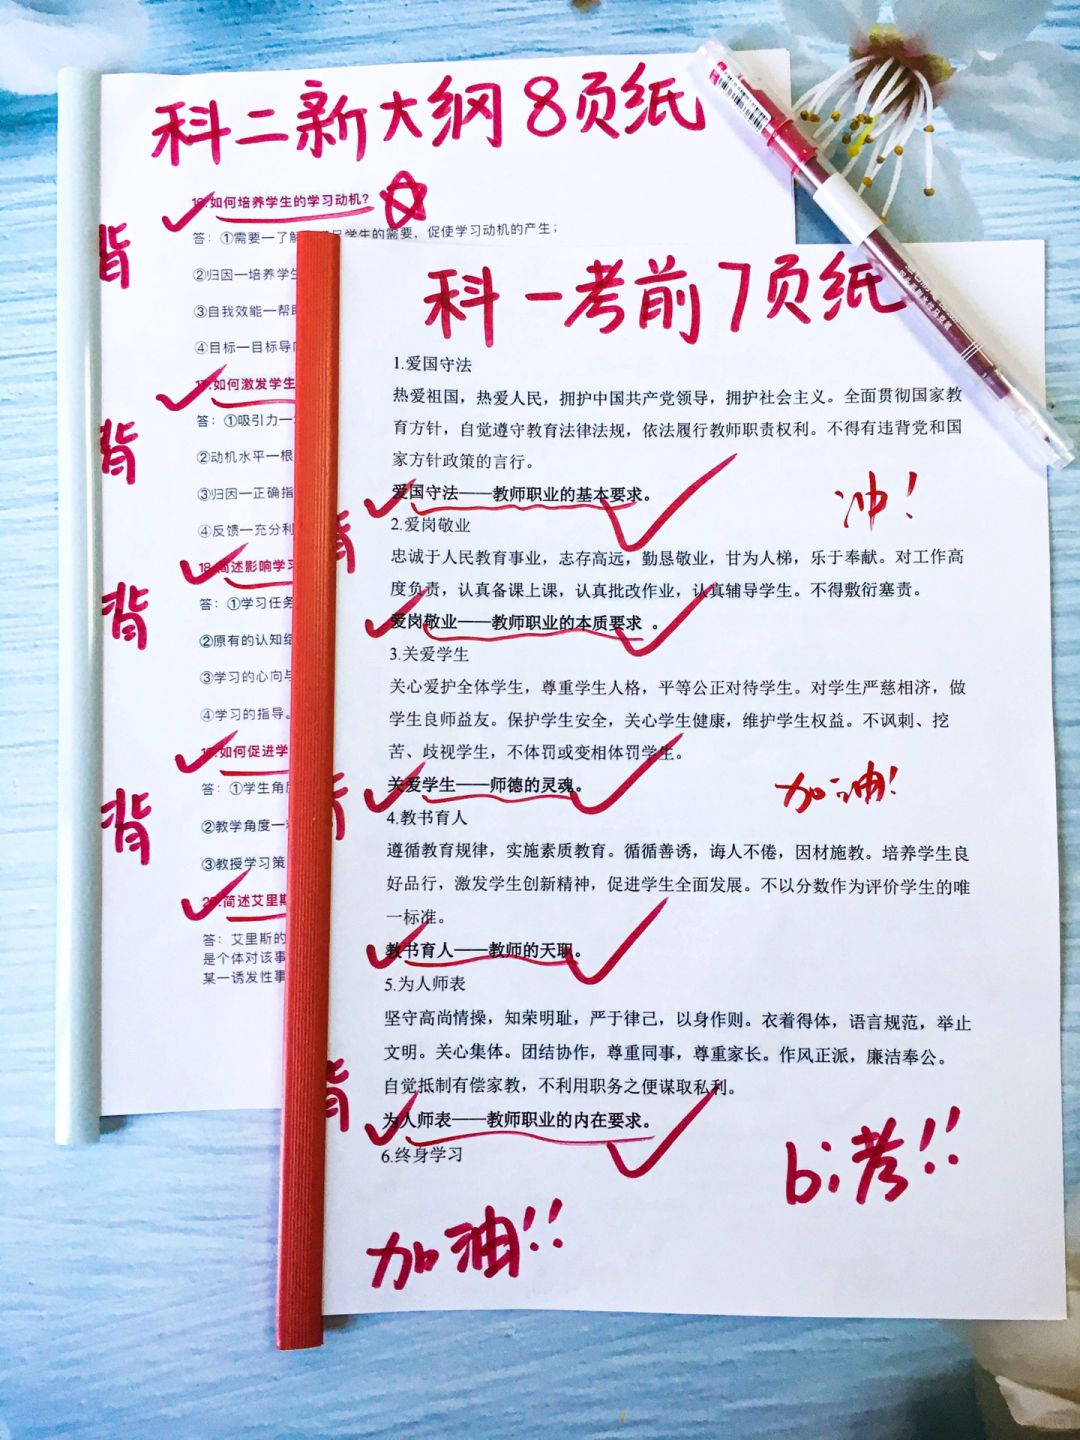 科二新大纲8页纸
16.如何培养学生的学习动机?
背
答：①需要—了解 学生的需要，促使学习动机的产生；
②归因—培养学生
③自我效能—帮助
④目标—目标导向
17.如何激发学生
答：①吸引力—
背
②动机水平—根
③归因—正确指
④反馈—充分利
18.简述影响学习
答：①学习任务
背
②原有的认知结
③学习的心向与
④学习的指导。
19.如何促进学
答：①学生角度
背
②教学角度—
③教授学习策
20.简述艾里斯
答：艾里斯的
是个体对该事
某一诱发性事
科一考前7页纸
1.爱国守法
热爱祖国，热爱人民，拥护中国共产党领导，拥护社会主义。全面贯彻国家教
育方针，自觉遵守教育法律法规，依法履行教师职责权利。不得有违背党和国
家方针政策的言行。
冲！
爱国守法——教师职业的基本要求。
背
2.爱岗敬业
忠诚于人民教育事业，志存高远，勤恳敬业，甘为人梯，乐于奉献。对工作高
度负责，认真备课上课，认真批改作业，认真辅导学生。不得敷衍塞责。
爱岗敬业——教师职业的本质要求 。
3.关爱学生
关心爱护全体学生，尊重学生人格，平等公正对待学生。对学生严慈相济，做
学生良师益友。保护学生安全，关心学生健康，维护学生权益。不讽刺、挖
苦、歧视学生，不体罚或变相体罚学生。
关爱学生——师德的灵魂。
加油！
背
4.教书育人
遵循教育规律，实施素质教育。循循善诱，诲人不倦，因材施教。培养学生良
好品行，激发学生创新精神，促进学生全面发展。不以分数作为评价学生的唯
一标准。
教书育人——教师的天职。
5.为人师表
坚守高尚情操，知荣明耻，严于律己，以身作则。衣着得体，语言规范，举止
文明。关心集体。团结协作，尊重同事，尊重家长。作风正派，廉洁奉公。
自觉抵制有偿家教，不利用职务之便谋取私利。
背
为人师表——教师职业的内在要求。
6.终身学习
bi考！！
加油！！